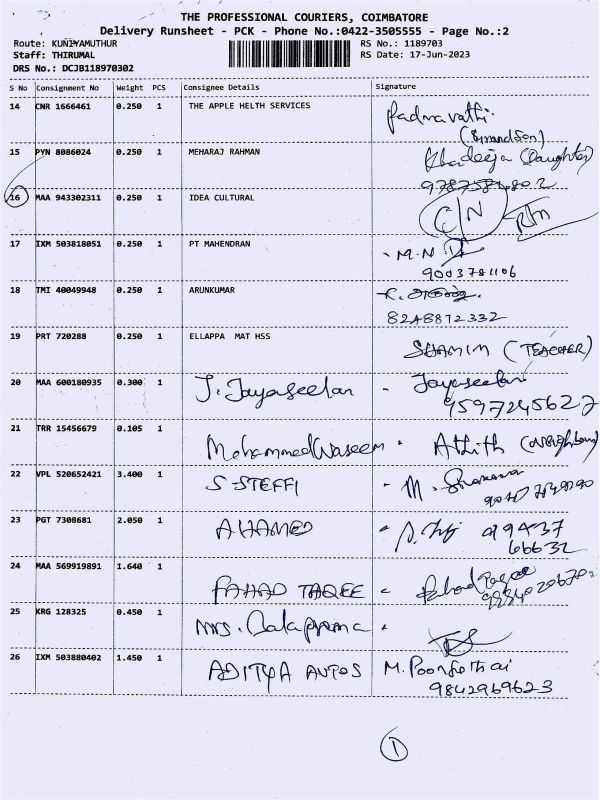 THE PROFESSIONAL COURIERS, COIMBATORE
Delivery Runsheet - PCK - Phone No.:0422-3505555 - Page No.:2
Route: KUNIYAMUTHUR RS No.: 1189703
Staff: THIRUMAL RS Date: 17-Jun-2023
DRS No.: DCJB118970302
S No Consignment No Weight PCS Consignee Details Signature
14 CNR 1666461 0.250 1 THE APPLE HELTH SERVICES Padmavathi
(Grandson)
15 PYN 8086024 0.250 1 MEHARAJ RAHMAN Khadeeja (Daughter)
16 MAA 943302311 0.250 1 IDEA CULTURAL C/N
17 IXM 503818051 0.250 1 PT MAHENDRAN M.N
9003781106
18 TMI 40049948 0.250 1 ARUNKUMAR
8248872332
19 PRT 720288 0.250 1 ELLAPPA MAT HSS SHAMIM (TEACHER)
20 MAA 600180935 0.300 1 J. Jayaseelan - Jayaseelan
9597245627
21 TRR 15456679 0.105 1 Mohammed Waseem - Athith (Neighbour)
22 VPL 520652421 3.400 1 S STEFFI - M.
23 PGT 7308681 2.050 1 AHAMED -
66632
24 MAA 569919891 1.640 1 FAHAD TAQEE -
25 KRG 128325 0.450 1 Mrs. Balaprema -
26 IXM 503880402 1.450 1 ADITYA AUTOS M. Poongothai
9842969623
1